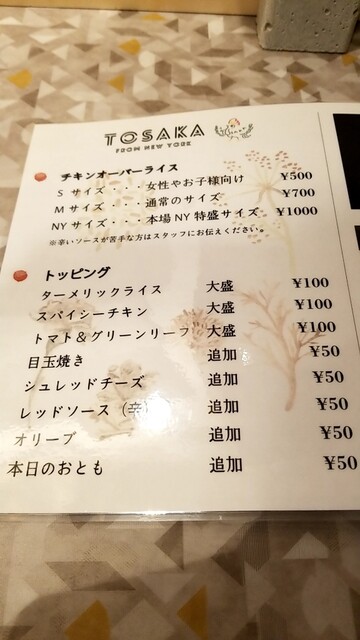 TOSAKA
FROM NEW YORK
チキンオーバーライス
S サイズ・・・女性やお子様向け ¥500
M サイズ・・・通常のサイズ ¥700
NYサイズ・・・本場NY特盛サイズ ¥1000
※辛いソースが苦手な方はスタッフにお伝えください。
トッピング
ターメリックライス 大盛 ¥100
スパイシーチキン 大盛 ¥100
トマト＆グリーンリーフ 大盛 ¥100
目玉焼き 追加 ¥50
シュレッドチーズ 追加 ¥50
レッドソース（辛） 追加 ¥50
オリーブ 追加 ¥50
本日のおとも 追加 ¥50